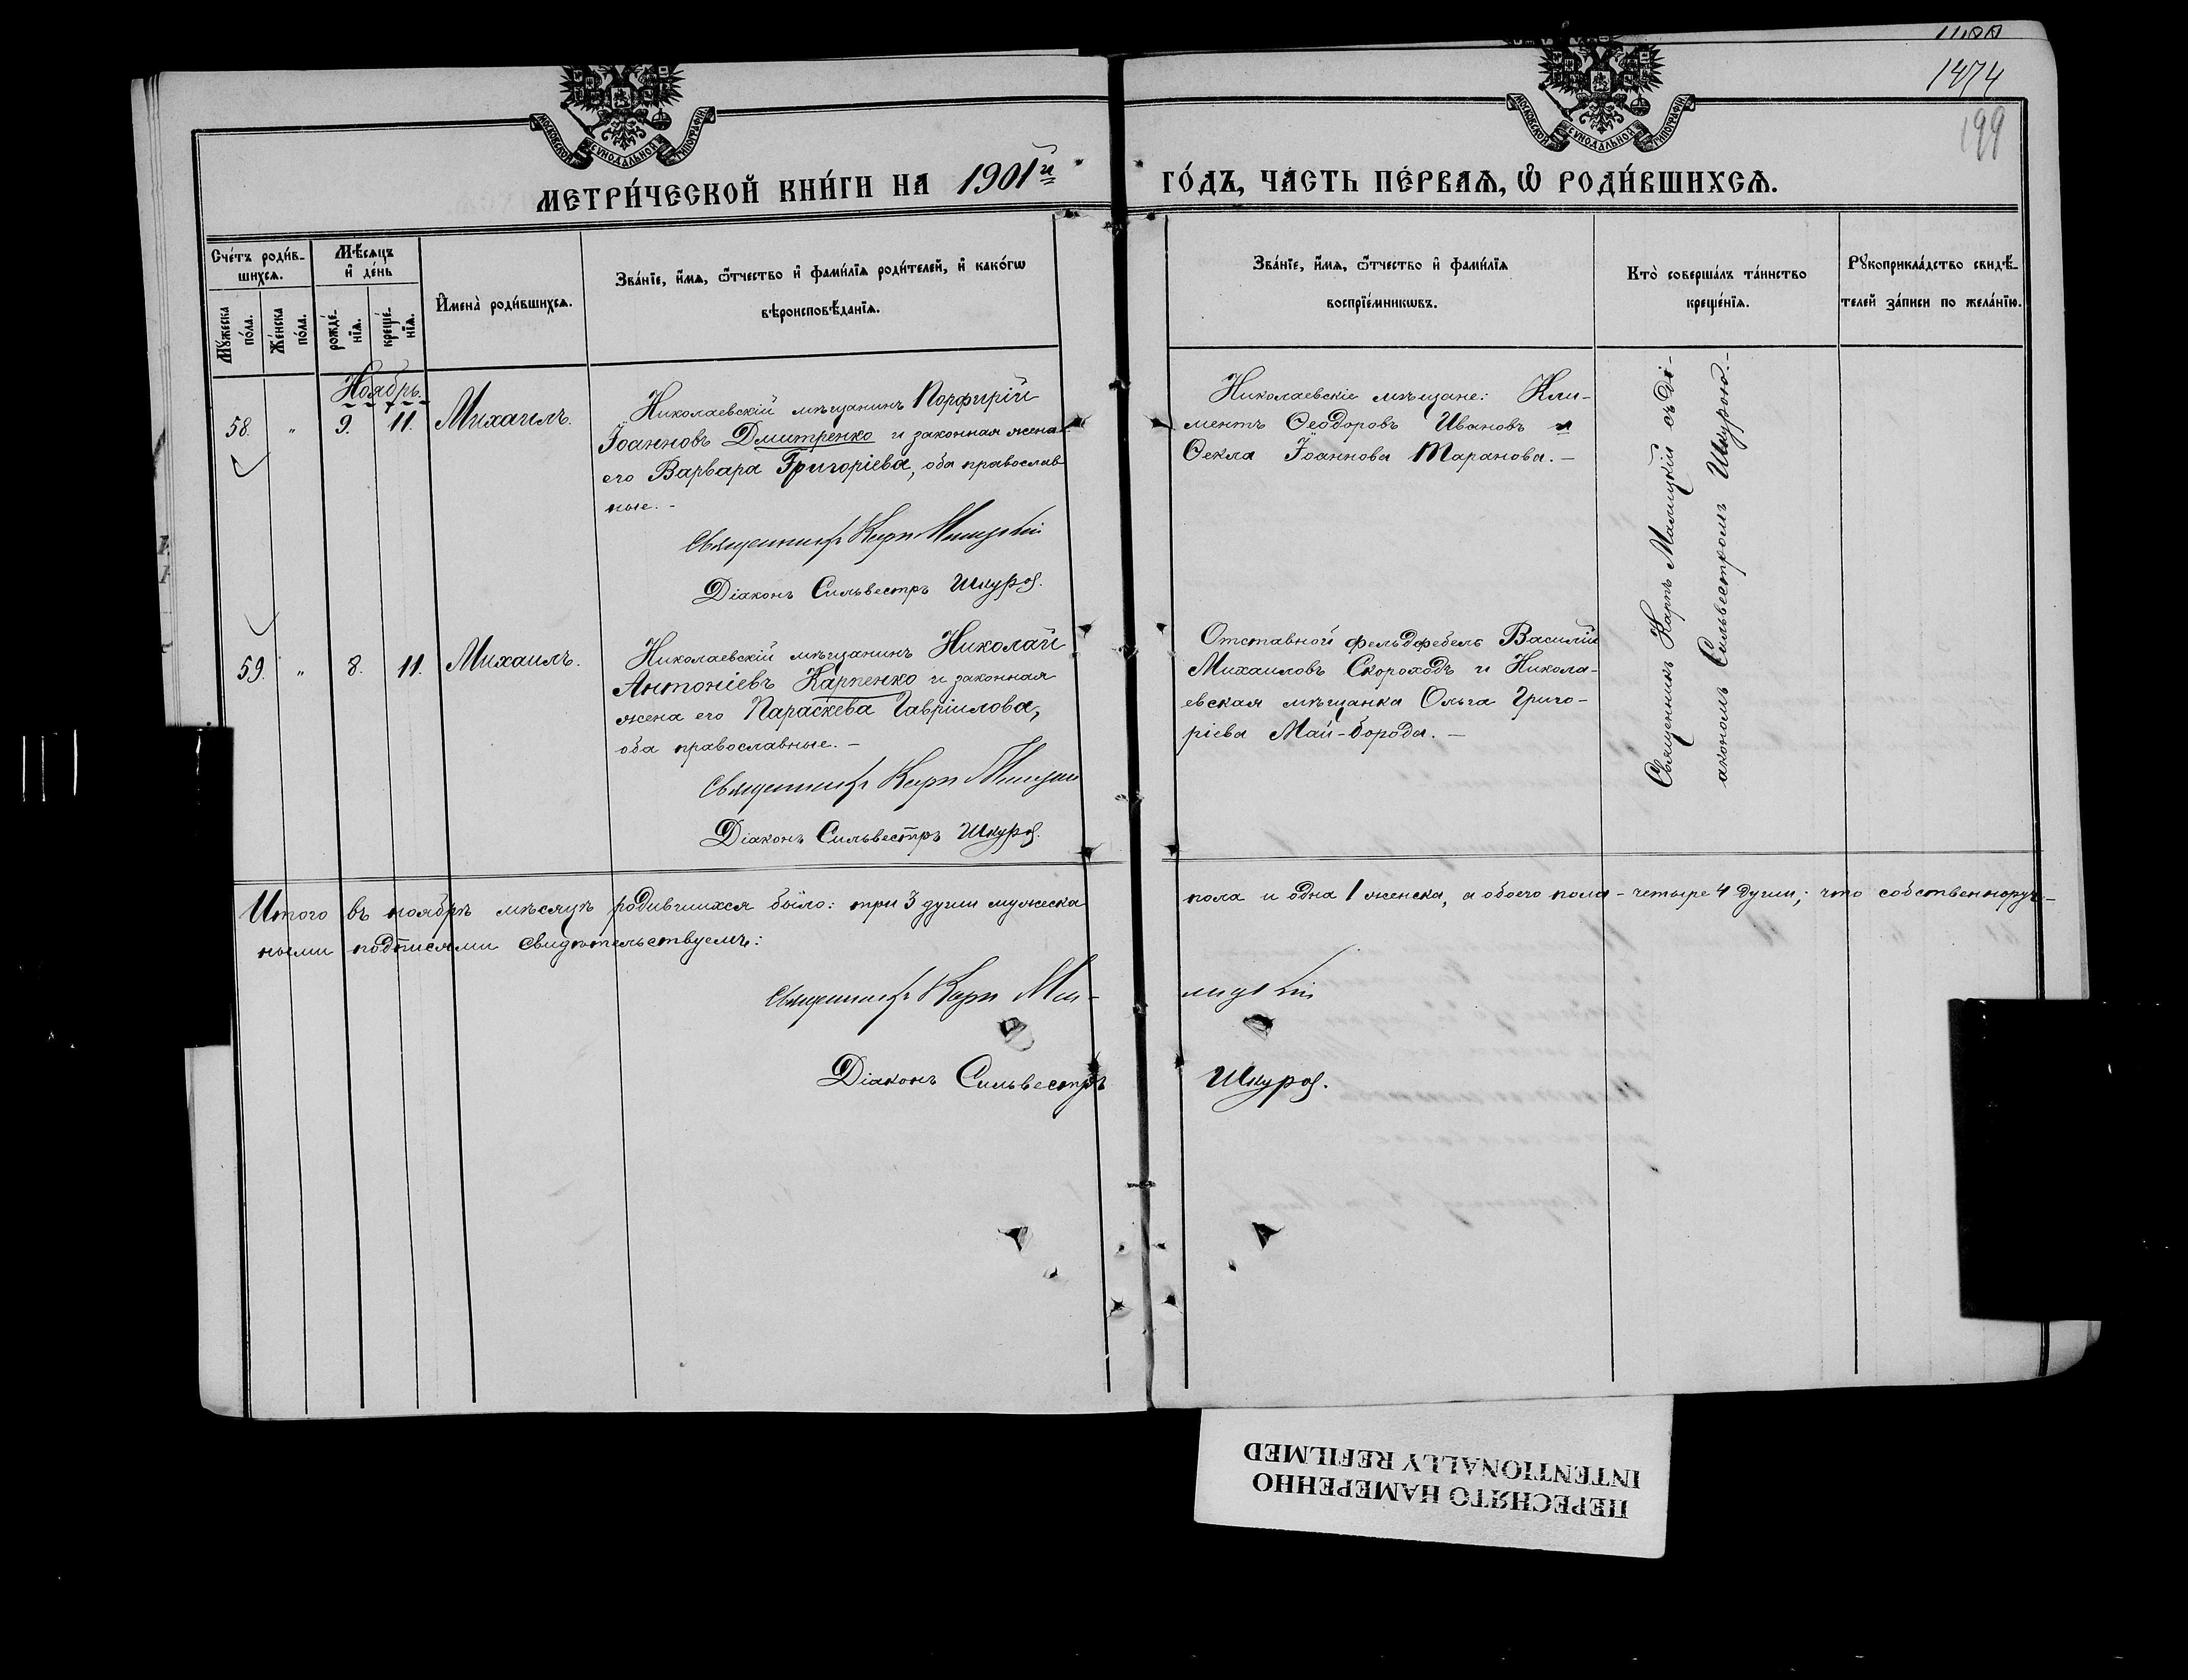 1474
199
МОСКОВСКОЙ СѴНОДАЛЬНОЙ ТИПОГРАФІИ
МОСКОВСКОЙ СѴНОДАЛЬНОЙ ТИПОГРАФІИ
МЕТРИ́ЧЕСКОЙ КНИ́ГИ НА 1901й
ГО́ДЪ, ЧА́СТЬ ПЕ́РВАѦ, Ѡ РОДИ́ВШИХСѦ.
Сче́тъ роди́в-
шихсѧ.
Мꙋ́жеска
по́ла.
Же́нска
по́ла.
Мѣ́сѧцъ
и҆ де́нь
рожде́-
нїѧ.
креще́-
нїѧ.
И҆мена̀ роди́вшихсѧ.
Зва́нїе, и҆́мѧ, ѻ҆́тчество и҆ фами́лїѧ роди́телей, и҆ како́гѡ
вѣроисповѣ́данїѧ.
Зва́нїе, и҆́мѧ, ѻ҆́тчество и҆ фами́лїѧ
воспрїе́мникѡвъ.
Кто̀ соверша́лъ та́инство
креще́нїѧ.
Рꙋкоприкла́дство свидѣ́-
телей за́писи по жела́нїю.
Ноябрь.
58. " 9. 11. Михаилъ.
Николаевскій мѣщанинъ Порфирій
Іоанновъ Дмитренко и законная жена
его Варвара Григоріева, оба православ-
ные. -
Священникъ Карпъ Малицкій
Діаконъ Сильвестръ Шкура.
Николаевскіе мѣщане: Кли-
ментъ Ѳеодоровъ Ивановъ и
Ѳекла Іоаннова Таранова. -
Священникъ Карпъ Малицкій съ ді-
акономъ Сильвестромъ Шкурою. -
59. " 8. 11. Михаилъ.
Николаевскій мѣщанинъ Николай
Антоніевъ Карпенко и законная
жена его Параскева Гавріилова,
оба православные. -
Священникъ Карпъ Малицкій
Діаконъ Сильвестръ Шкура.
Отставной фельдфебель Василій
Михаиловъ Скороходъ и Никола-
евская мѣщанка Ольга Григо-
ріева Май-борода. -
Итого въ ноябрѣ мѣсяцѣ родившихся было: три 3 души мужеска пола и одна 1 женска, а обоего пола - четыре 4 души; что собственноруч-
ными подписями свидѣтельствуемъ:
Священникъ Карпъ Ма- лицкій
Діаконъ Сильвестръ Шкура.
ПЕРЕСНЯТО НАМЕРЕННО
INTENTIONALLY REFILMED